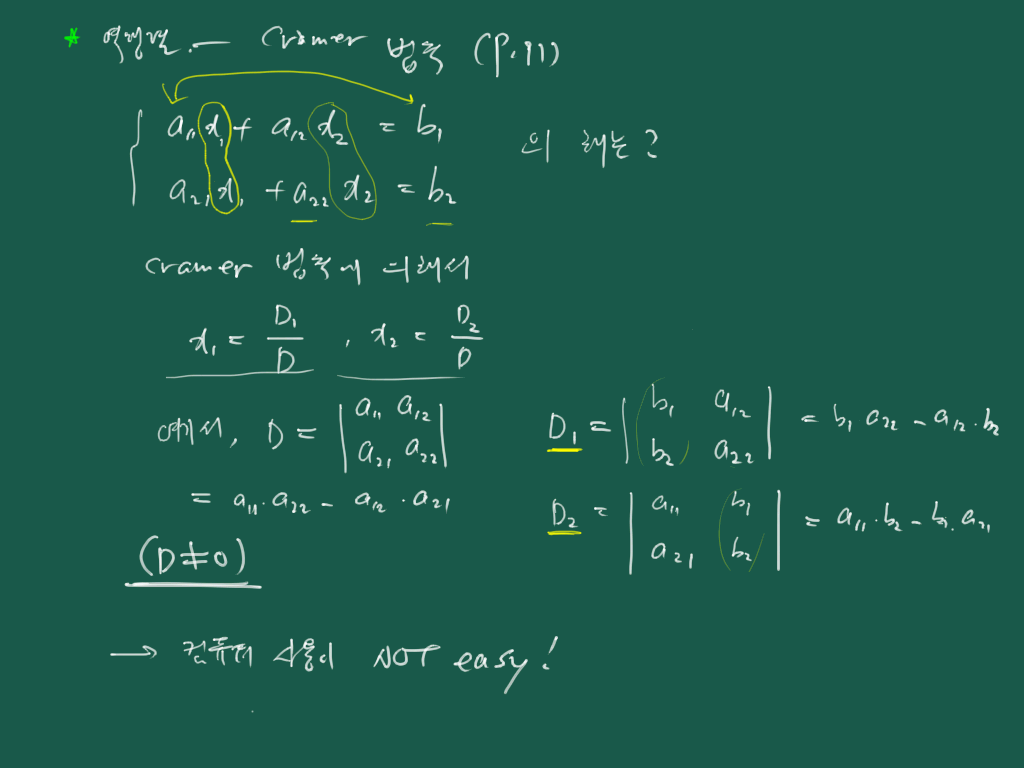 * 역행렬. — Cramer 법칙 (P.91)
a₁₁x₁ + a₁₂x₂ = b₁
의 해는?
a₂₁x₁ + a₂₂x₂ = b₂
Cramer 법칙에 의해서
x₁ = D₁/D , x₂ = D₂/D
여기서, D = |a₁₁ a₁₂
a₂₁ a₂₂|
= a₁₁·a₂₂ - a₁₂·a₂₁
(D≠0)
D₁ = |b₁ a₁₂
b₂ a₂₂| = b₁a₂₂ - a₁₂·b₂
D₂ = |a₁₁ b₁
a₂₁ b₂| = a₁₁·b₂ - b₁.a₂₁
→ 컴퓨터 사용이 NOT easy!